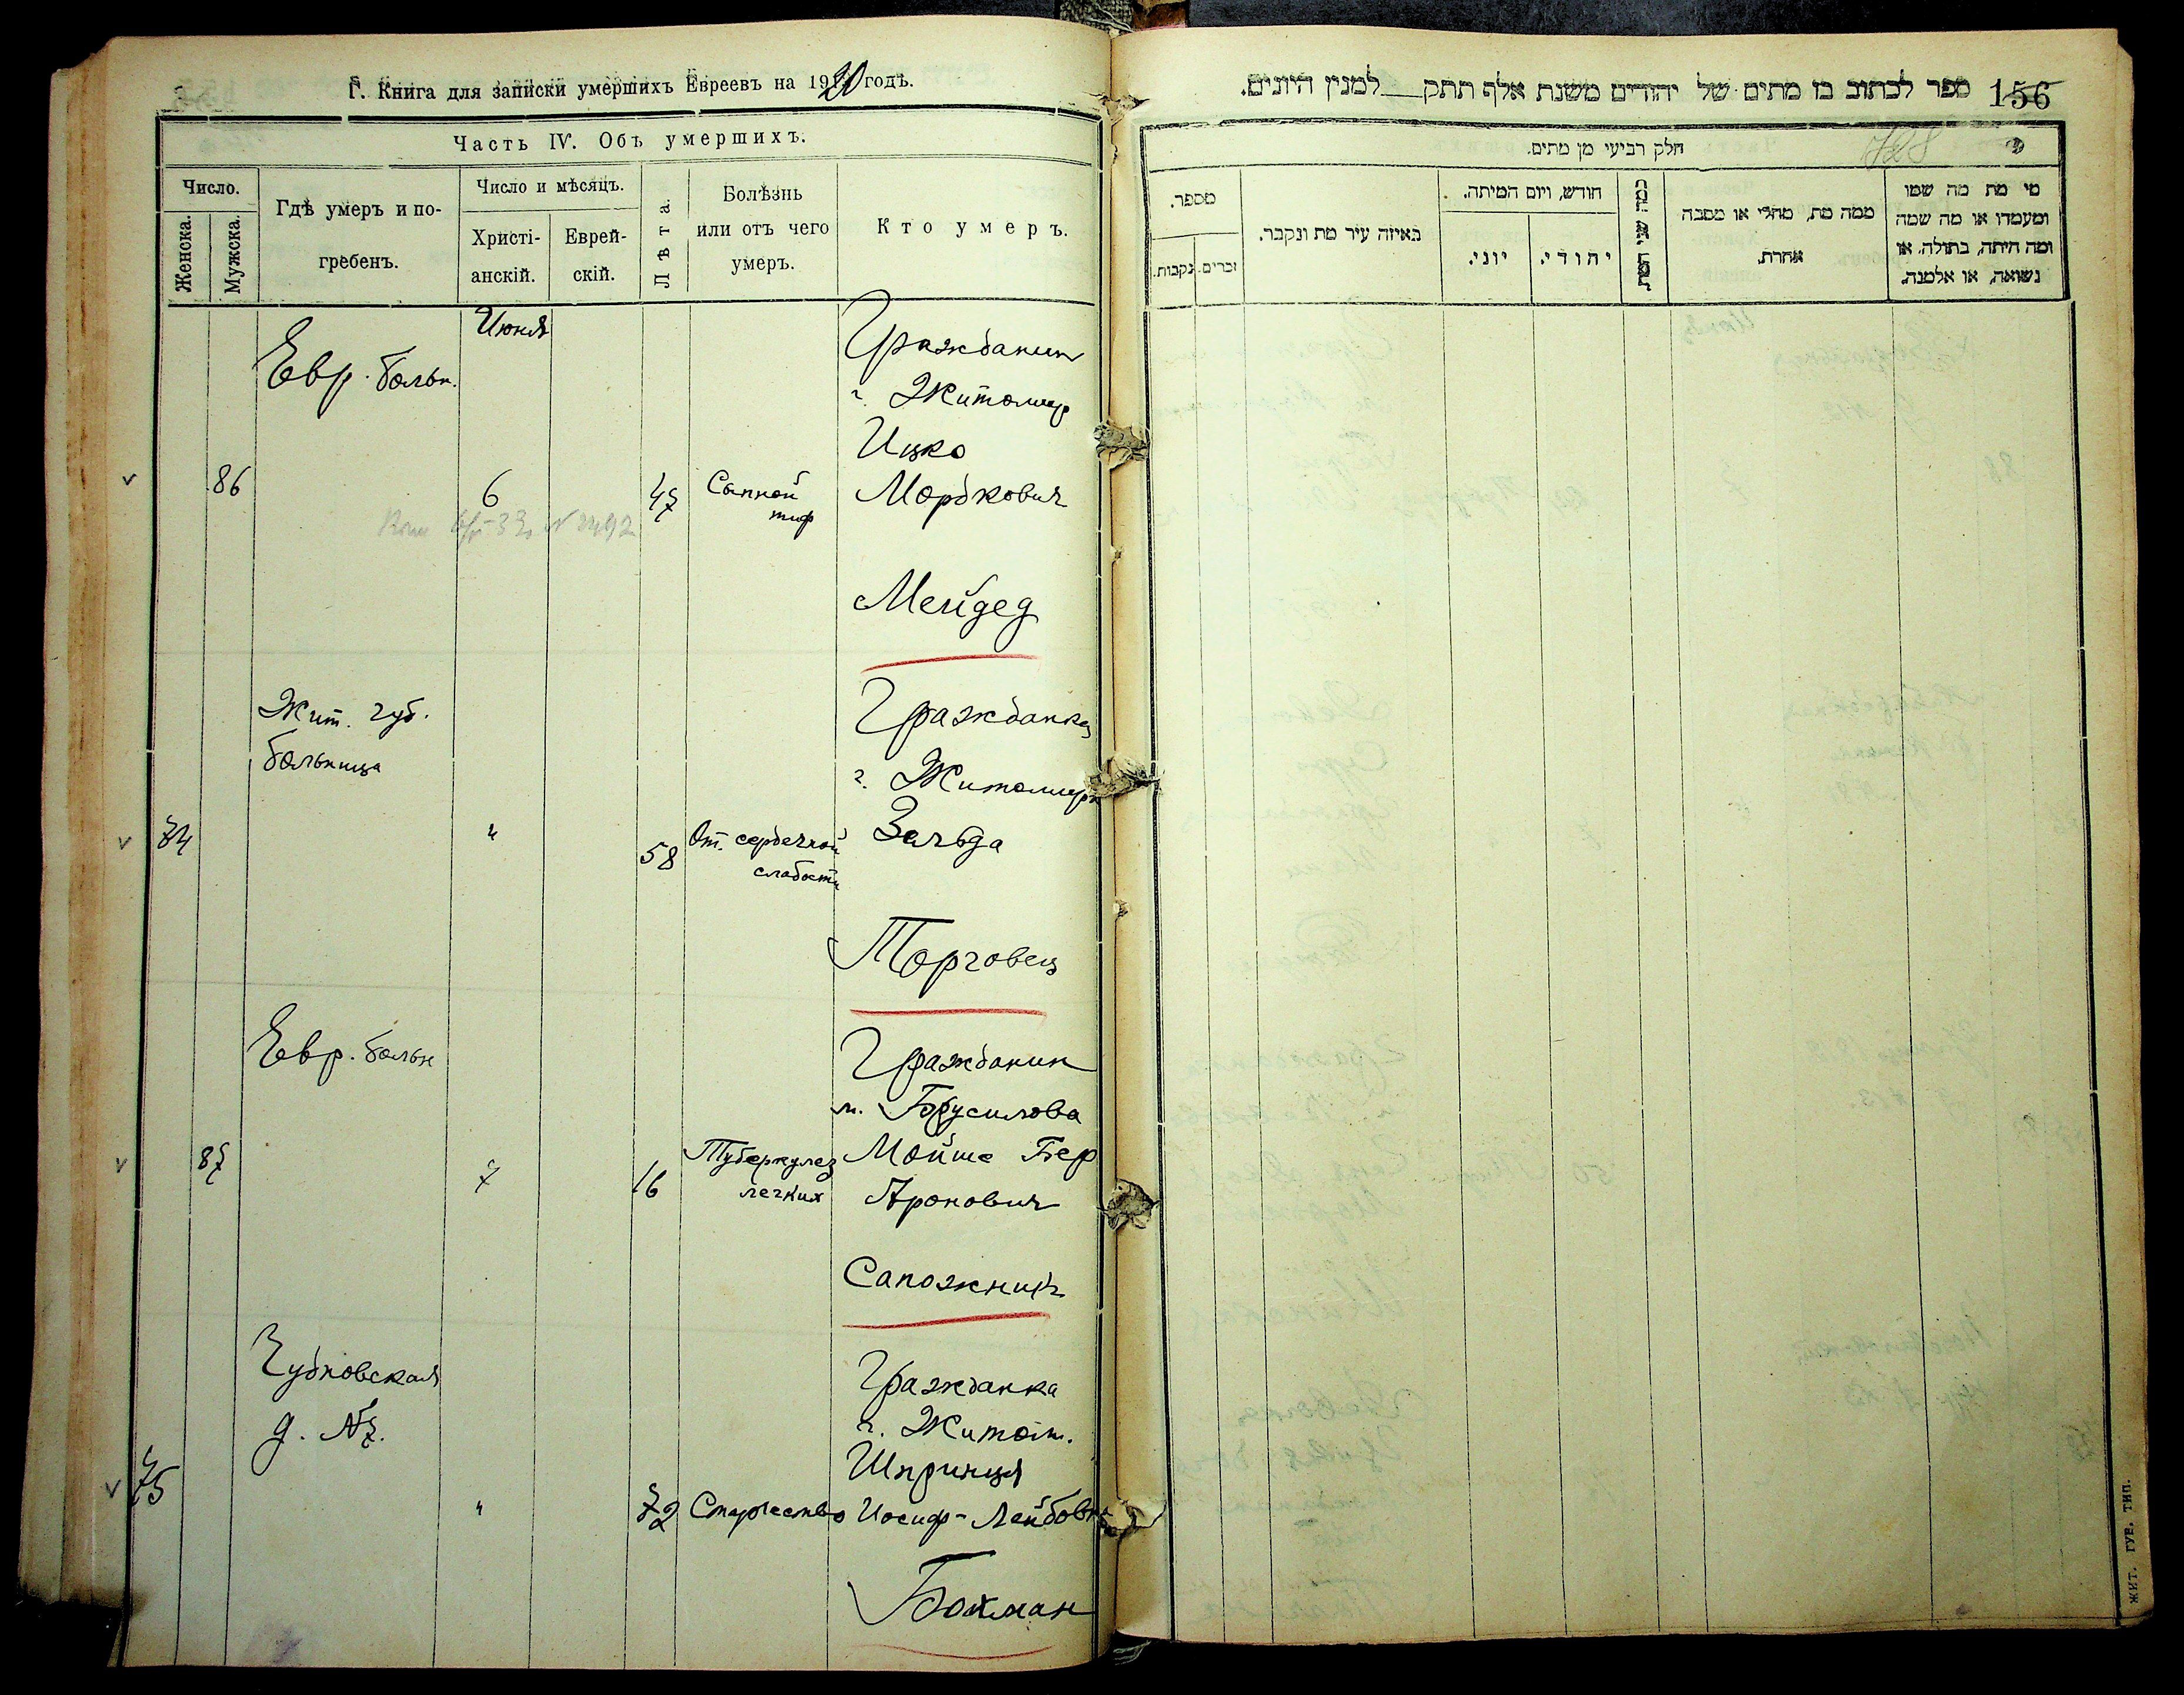 Г. Книга для записки умершихъ Евреевъ на 1920 годъ.
Часть IV. Объ умершихъ.
Число.
Женска.
Мужска.
Гдѣ умеръ и по-
гребенъ.
Число и мѣсяцъ.
Христі-
анскій.
Еврей-
скій.
Лѣта.
Болѣзнь
или отъ чего
умеръ.
Кто умеръ.
Июня
Евр. больн.
Гражданин
г. Житомир
Ицко
86
6
47
Сыпной
тиф
Мордкович
Мейдед
Жит. губ.
больница
Гражданка
г. Житомира
74
"
58
От сердечной
слабости
Зельда
Торговец
Евр. больн
Гражданин
м. Брусилова
87
7
16
Туберкулез
легких
Мойше Бер
Аронович
Сапожник
Чудновская
д. №7.
Гражданка
г. Житом.
Шпринця
75
"
72
Старчество
Иосиф-Лейбовна
Бокман
ספר לכתוב בו מתים של יהודים משנת אלף תתק למנין היונים.
156
חלק רביעי מן מתים.
מספר.
נקבות.
זכרים.
באיזה עיר מת ונקבר.
חודש, ויום המיתה.
יוני.
יהודי.
כמה שני המת
ממה מת, מחלי או מסבה
אחרת.
מי מת מה שמו
ומעמדו או מה שמה
ומה היתה, בתולה, או
נשואה, או אלמנה.
ЖИТ. ГУБ. ТИП.